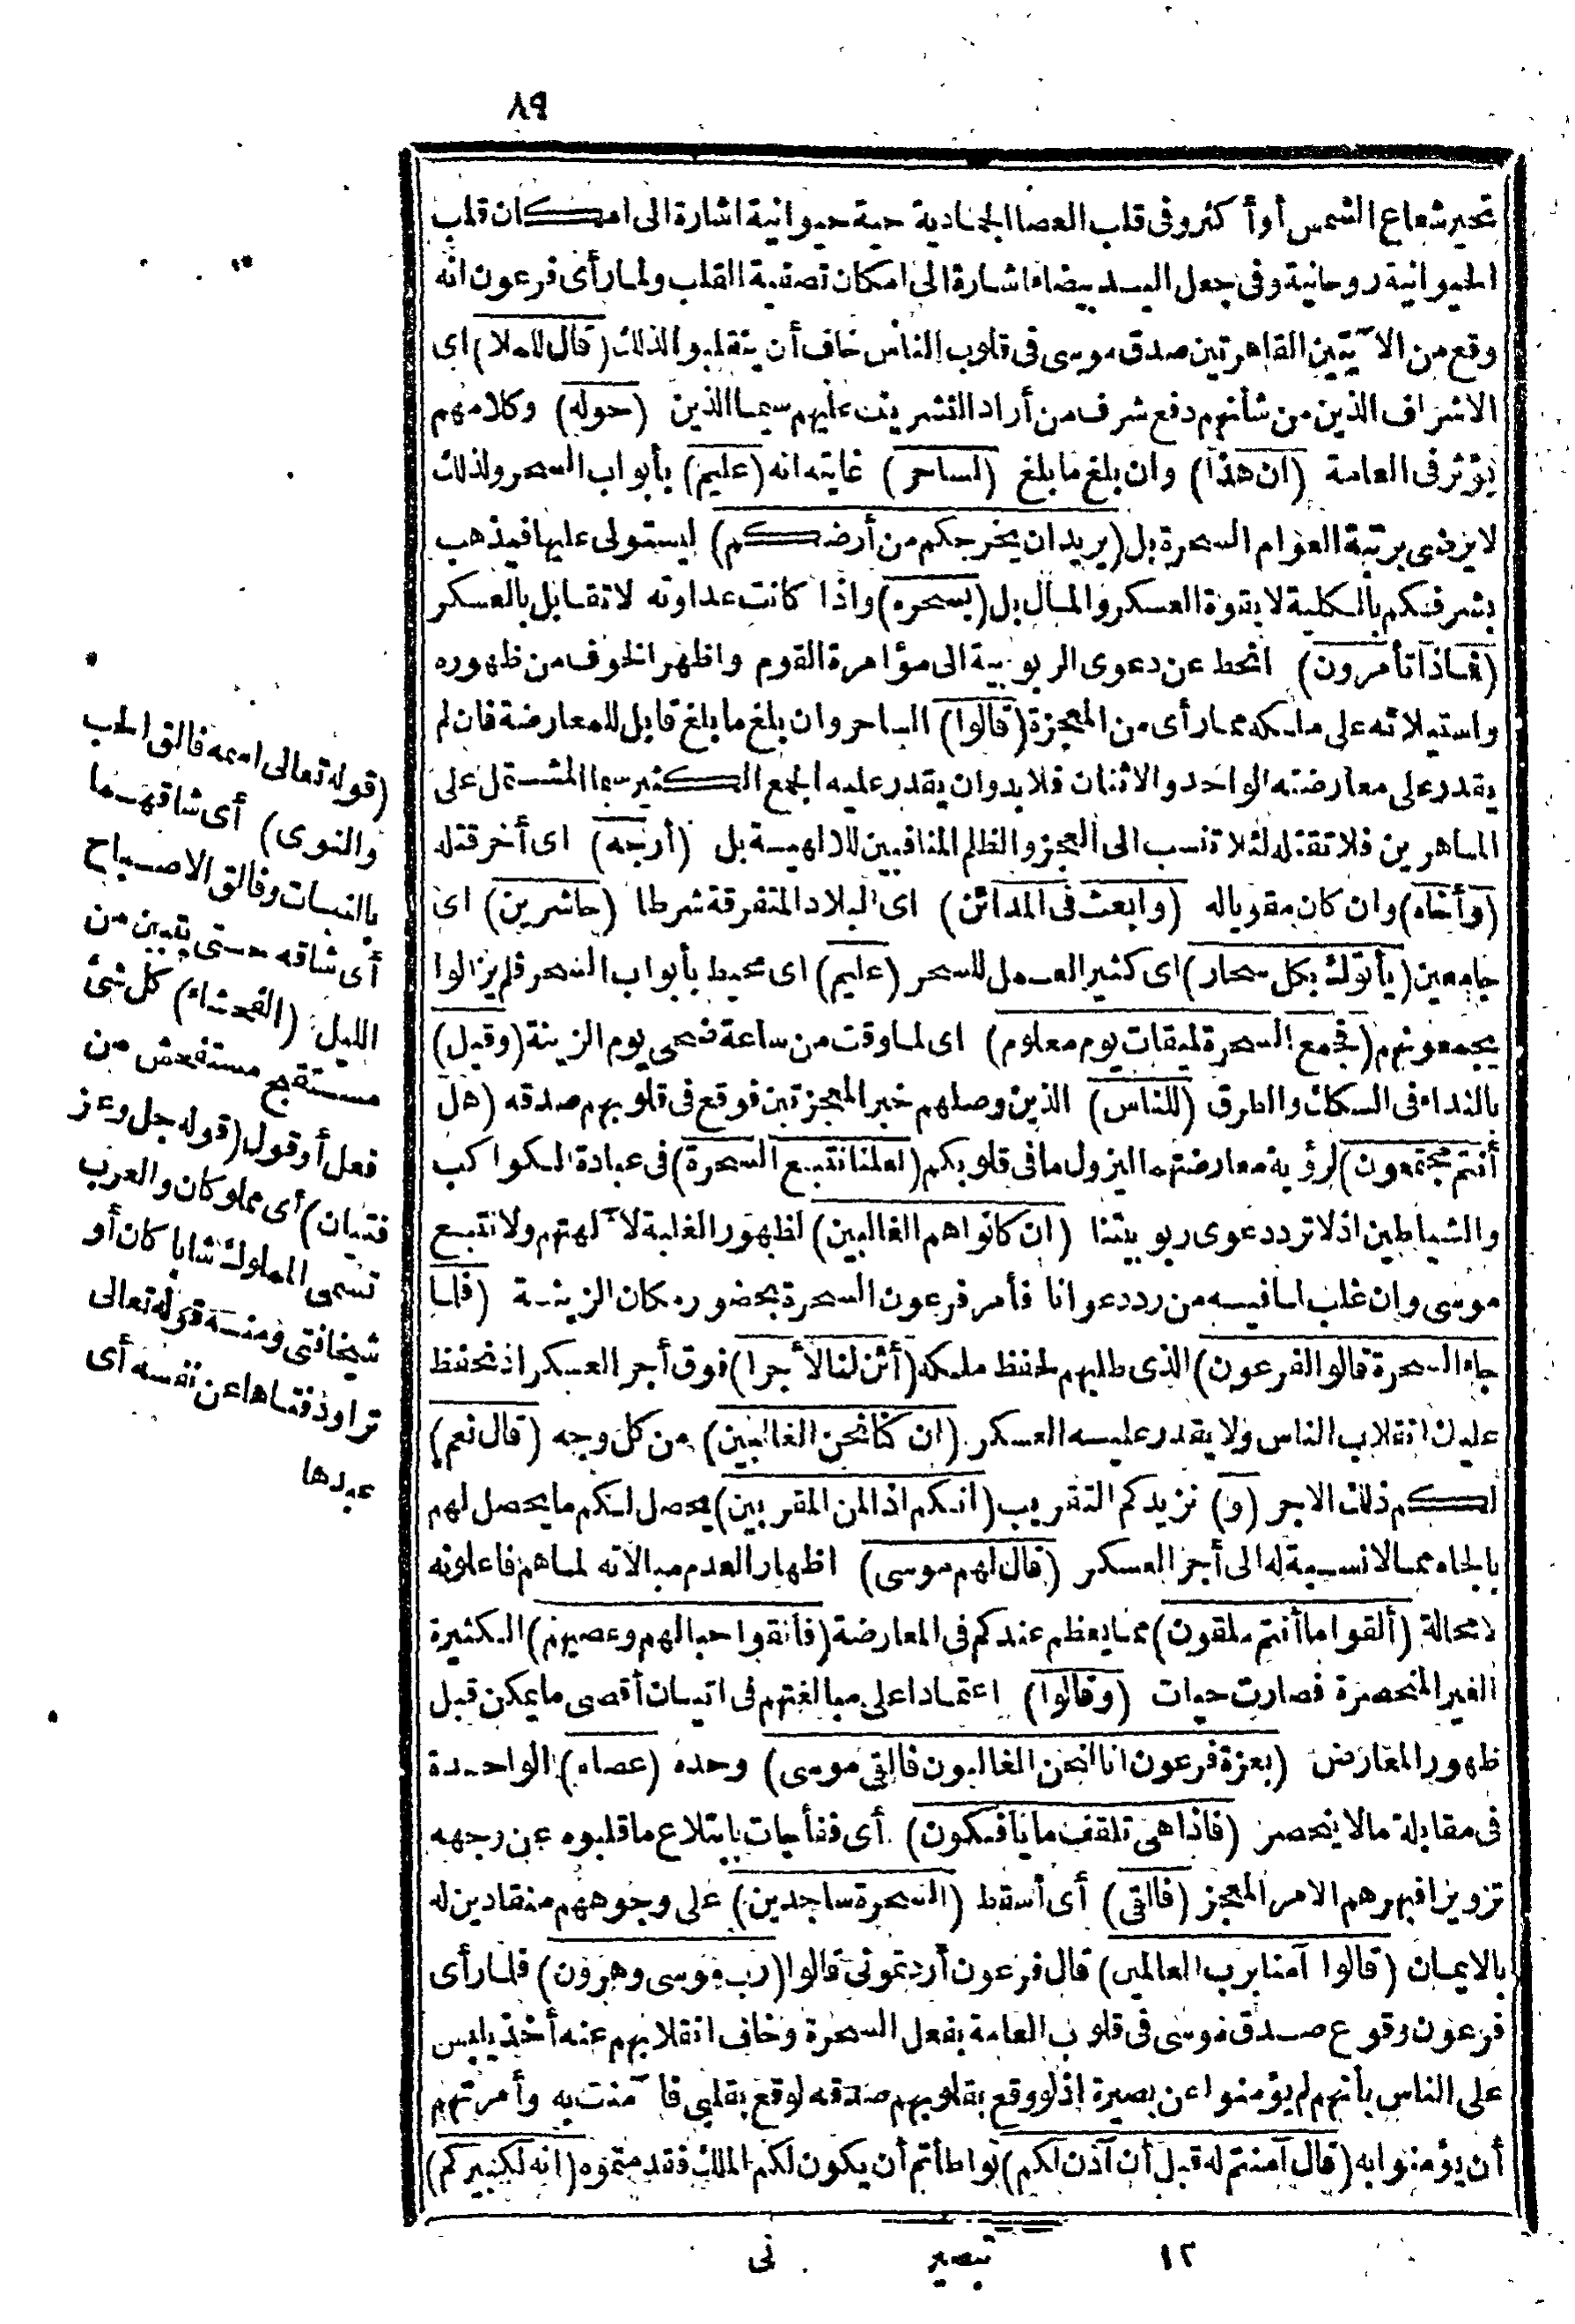 ٨٩
تحير شعاع الشمس أو أكثر وفى قلب العصا الجمادية حية حيوانية اشارة الى امكان قلب
الحيوانية روحانية وفى جعل اليد بيضاء اشارة الى امكان تصفية القلب ولما رأى فرعون انه
وقع من الآيتين القاهرتين صدق موسى فى قلوب الناس خاف أن ينقلبوا لذلك (قال للملا) اى
الاشراف الذين من شأنهم دفع شرف من أراد التشريف عليهم سيما الذين (حوله) وكلامهم
يؤثر فى العامة (ان هذا) وان بلغ ما بلغ (لساحر) غايته انه (عليم) بأبواب السحر ولذلك
لا يرضى برتبة العوام السحرة بل (يريد ان يخرجكم من أرضكم) ليستولى عليها فيذهب
بشرفكم بالكلية لا بقوة العسكر والمال بل (بسحره) واذا كانت عداوته لا تقابل بالعسكر
(فماذا تأمرون) انحط عن دعوى الربوبية الى مؤامرة القوم واظهر الخوف من ظهوره
واستيلائه على ملكه مما رأى من المعجزة (قالوا) الساحر وان بلغ ما بلغ قابل للمعارضة فان لم
يقدر على معارضته الواحد والاثنان فلا بد وان يقدر عليه الجمع الكثير سيما المشتمل على
الماهرين فلا تقتله لئلا تنسب الى العجز والظلم المنافيين للالهية بل (أرجه) اى أخر قتله
(وأخاه) وان كان مقويا له (وابعث فى المدائن) اى البلاد المتفرقة شرطا (حاشرين) اى
جامعين (يأتوك بكل سحار) اى كثير العمل للسحر (عليم) اى محيط بأبواب السحر فلم يزالوا
يجمعونهم (فجمع السحرة لميقات يوم معلوم) اى لما وقت من ساعة ضحى يوم الزينة (وقيل)
بالنداء فى السكك والطرق (للناس) الذين وصلهم خبر المعجزتين فوقع فى قلوبهم صدقه (هل
أنتم مجتمعون) لرؤية معارضتهما ليزول ما فى قلوبكم (لعلنا نتبع السحرة) فى عبادة الكواكب
والشياطين اذ لا ترد دعوى ربوبيتنا (ان كانوا هم الغالبين) لظهور الغلبة لآلهتهم ولا نتبع
موسى وان غلب لما فيه من رد دعوانا فأمر فرعون السحرة بحضور مكان الزينة (فلما
جاء السحرة قالوا لفرعون) الذى طلبهم لحفظ ملكه (أئن لنا لأجرا) فوق أجر العسكر اذ نحفظ
عليك انقلاب الناس ولا يقدر عليه العسكر (ان كنا نحن الغالبين) من كل وجه (قال نعم)
لكم ذلك الاجر (و) نزيدكم التقريب (انكم اذا لمن المقربين) يحصل لكم ما يحصل لهم
بالجاه مما لا نسبة له الى أجر العسكر (قال لهم موسى) اظهارا لعدم مبالاته لما هم فاعلونه
لا محالة (ألقوا ما أنتم ملقون) مما يعظم عندكم فى المعارضة (فألقوا حبالهم وعصيهم) الكثيرة
الغير المنحصرة فصارت حيات (وقالوا) اعتمادا على مبالغتهم فى اتيان أقصى ما يمكن قبل
ظهور المعارض (بعزة فرعون انا لنحن الغالبون فالقى موسى) وحده (عصاه) الواحدة
فى مقابلة ما لا ينحصر (فاذا هى تلقف ما يأفكون) أى ففاجأت بابتلاع ما قلبوه عن وجهه
تزويرا فبهرهم الامر المعجز (فالقى) أى أسقط (السحرة ساجدين) على وجوههم منقادين له
بالايمان (قالوا آمنا برب العالمين) قال فرعون أردتمونى قالوا (رب موسى وهرون) فلما رأى
فرعون وقوع صدق موسى فى قلوب العامة بفعل السحرة وخاف انقلابهم عنه أخذ يلبس
على الناس بأنهم لم يؤمنوا عن بصيرة اذ لو وقع بقلوبهم صدقه لوقع بقلبى فآمنت به وأمرتهم
أن يؤمنوا به (قال آمنتم له قبل أن آذن لكم) تواطأتم أن يكون لكم الملك فقدمتموه (انه لكبيركم)
(قوله تعالى اسمه فالق الحب
والنوى) أى شاقهما
بالنبات وفالق الاصباح
أى شاقه حتى يتبين من
الليل (الفحشاء) كل شئ
مستقبح مستفحش من
فعل أو قول (قوله جل وعز
فتيان) أى مملوكان والعرب
تسمى المملوك شابا كان أو
شيخا فتى ومنه قوله تعالى
تراود فتاها عن نفسه أى
عبدها
١٢ تبصير نى